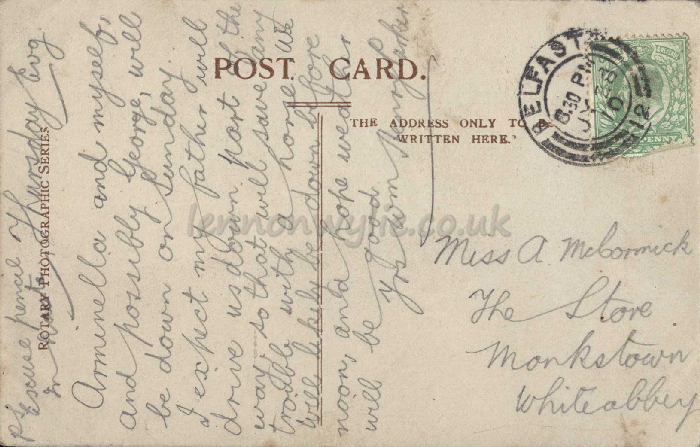 POST CARD.
THE ADDRESS ONLY TO B
WRITTEN HERE.
ROTARY PHOTOGRAPHIC SERIES
BELFAST
8.30 PM
10
12
PENNY
Thursday Evg
Arminella and myself,
and possibly George, will
be down on Sunday
I expect my father will
drive us down part of the
way so that will save any
trouble with a horse. We
will likely be down before
noon, and hope weather
will be good.
Yrs
PS
Excuse pencil
in
Miss A. McCormick
The Store
Monkstown
Whiteabbey
lennonwylie.co.uk